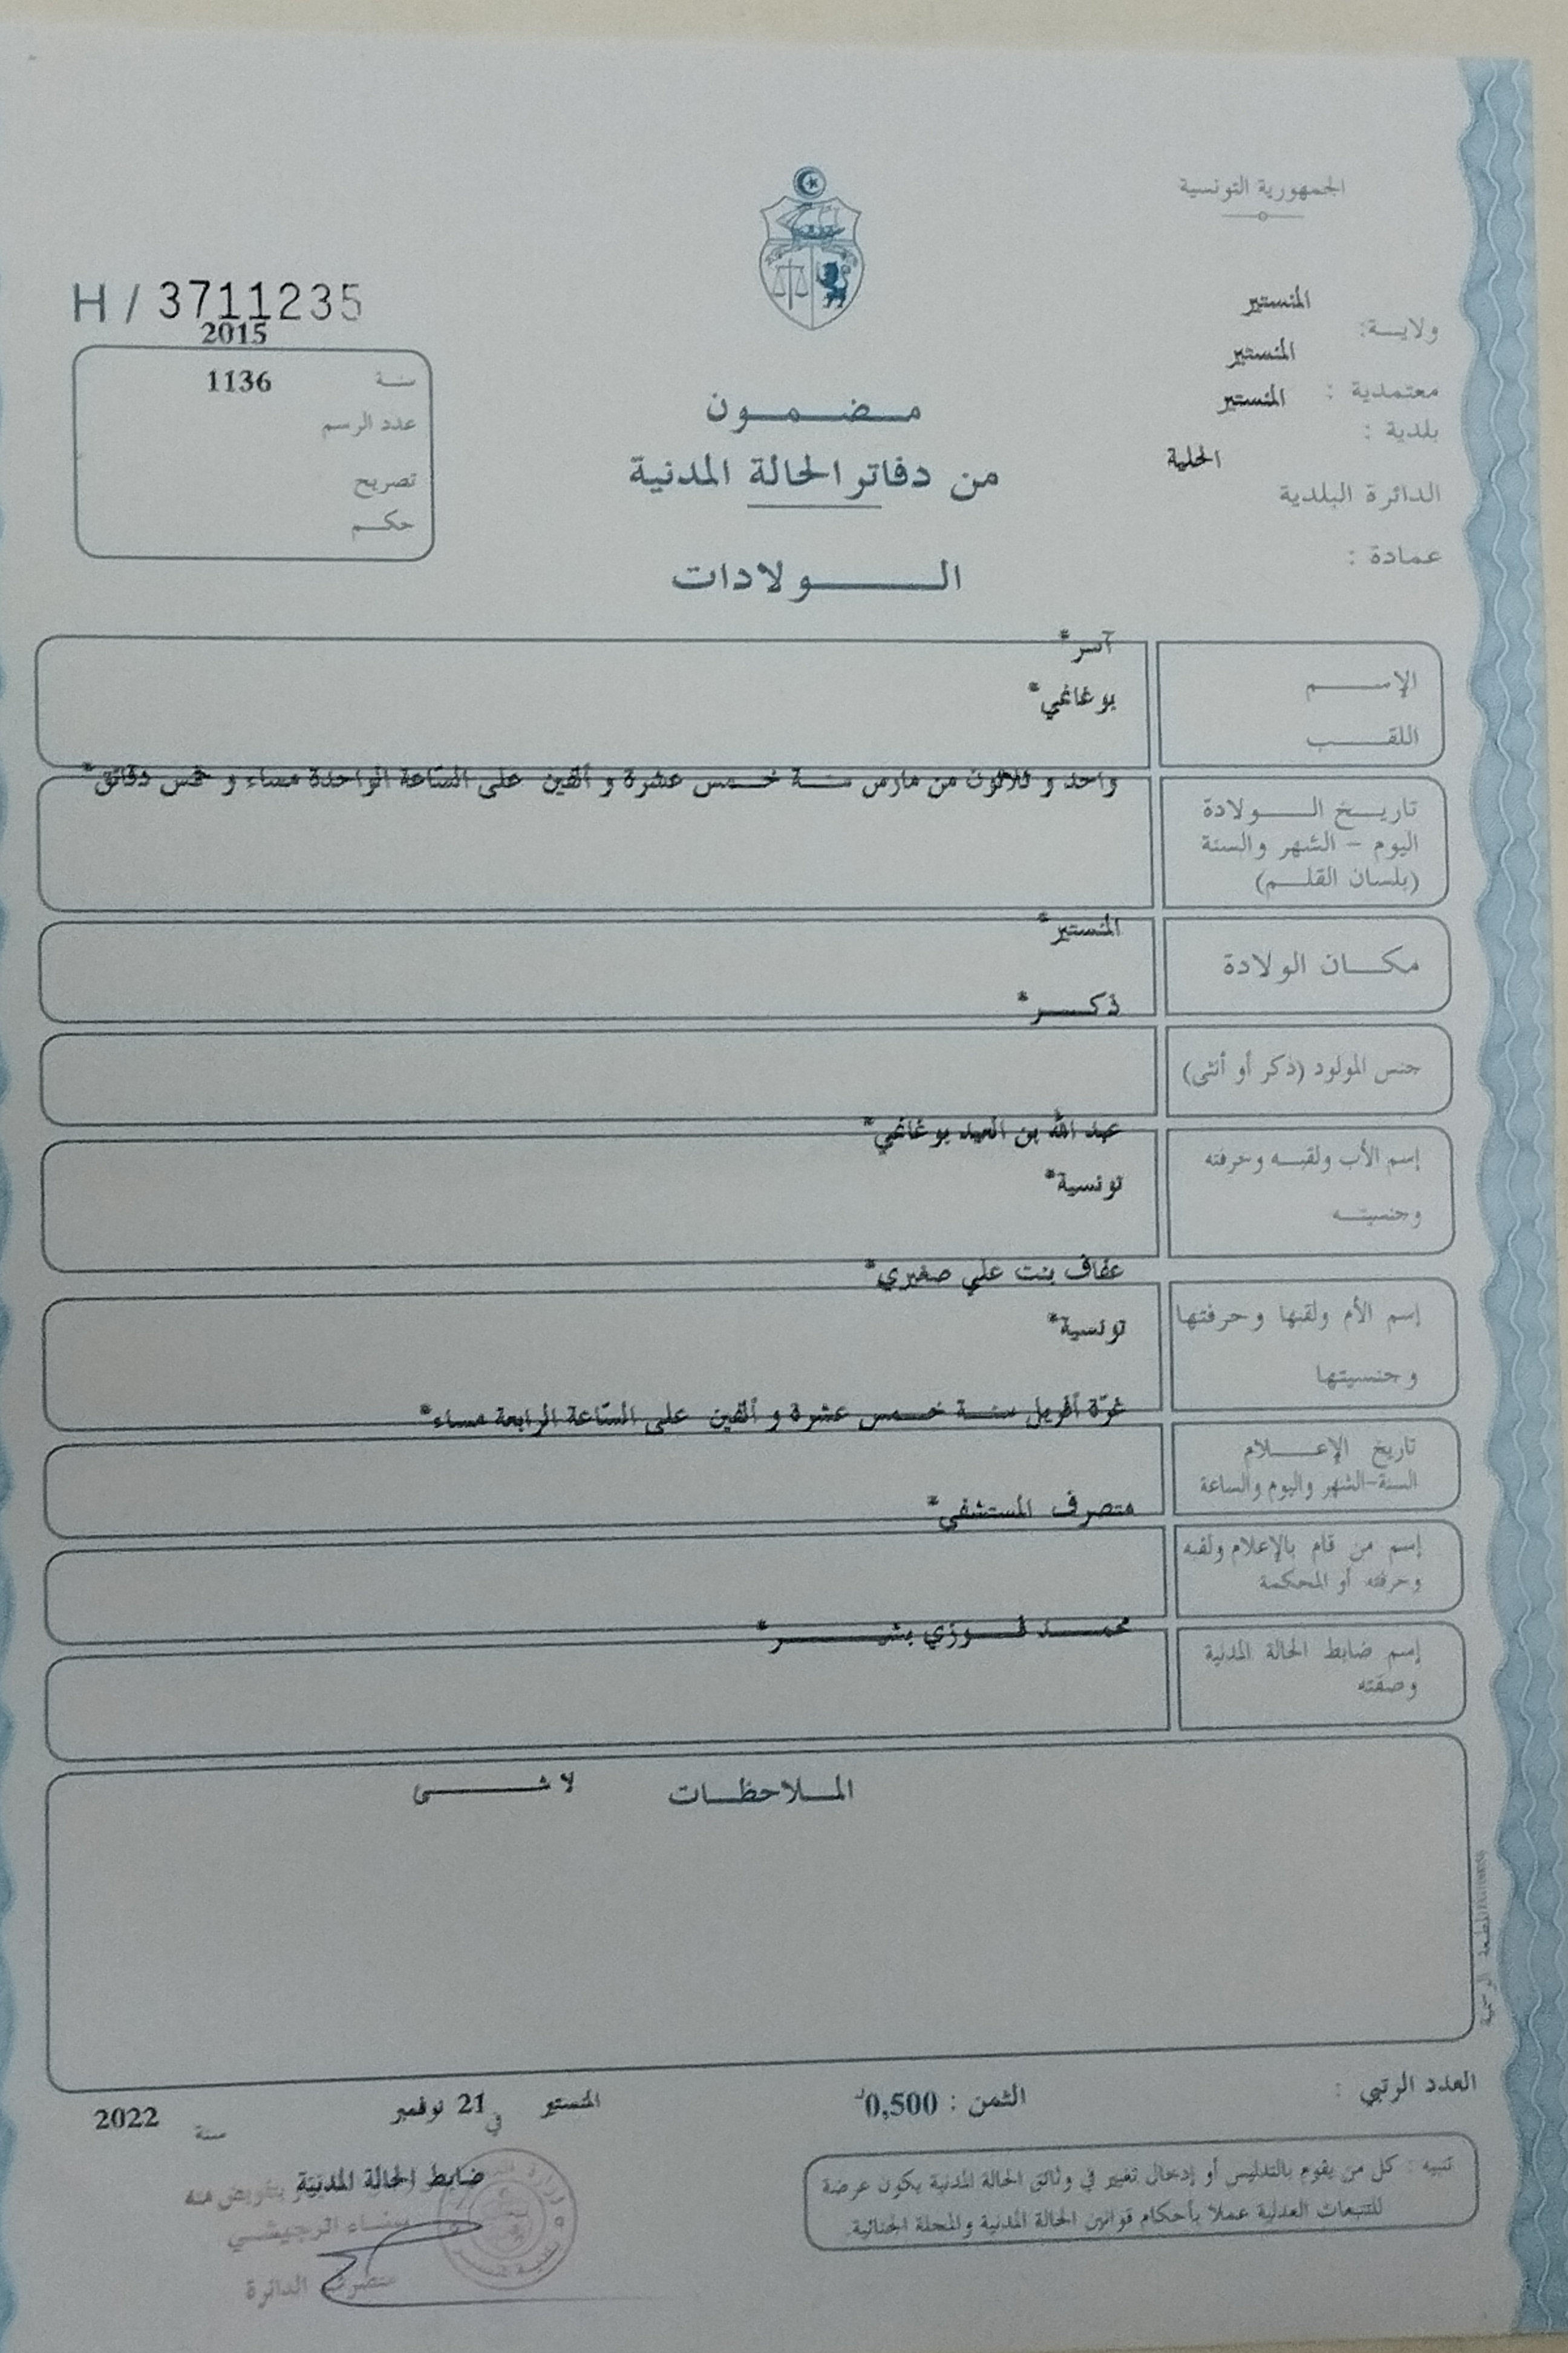 الجمهورية التونسية
H / 3711235
2015
سنة 1136
عدد الرسم
تصريح
حكم
المنستير
ولاية:
المنستير
معتمدية :
المنستير
بلدية :
الحلية
الدائرة البلدية
عمادة :
مضمون
من دفاتر الحالة المدنية
الولادات
آسر*
الإسم
بوغانمي*
اللقب
واحد و ثلاثون من مارس سنة خمس عشرة و ألفين على الساعة الواحدة مساء و خمس دقائق*
تاريخ الولادة
اليوم - الشهر والسنة
(بلسان القلم)
المنستير*
مكان الولادة
ذكر*
جنس المولود (ذكر أو أنثى)
عبد الله بن العيد بوغانمي*
إسم الأب ولقبه وحرفته
تونسية*
وجنسيته
عفاف بنت علي صغيري*
إسم الأم ولقبها وحرفتها
تونسية*
وجنسيتها
غرّة أفريل سنة خمس عشرة و ألفين على السّاعة الرابعة مساء*
تاريخ الإعلام
السنة-الشهر واليوم والساعة
متصرف المستشفى*
إسم من قام بالإعلام ولقبه
وحرفته أو المحكمة
محمد فوزي بشر*
إسم ضابط الحالة المدنية
وصفته
الملاحظات لا شئ
المطبعة الرسمية
العدد الرتبي :
الثمن : 0,500د
المنستير في 21 نوفمبر سنة 2022
تنبيه : كل من يقوم بالتدليس أو إدخال تغيير في وثائق الحالة المدنية يكون عرضة
للتتبعات العدلية عملا بأحكام قوانين الحالة المدنية والمجلة الجنائية.
ضابط الحالة المدنية
بتفويض منه
الرجيشي
متصرف الدائرة